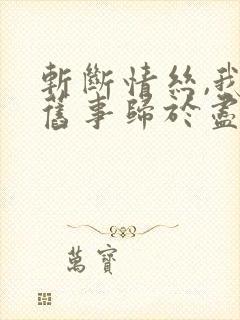 斬斷情絲,我
舊事歸於盡
萬寶